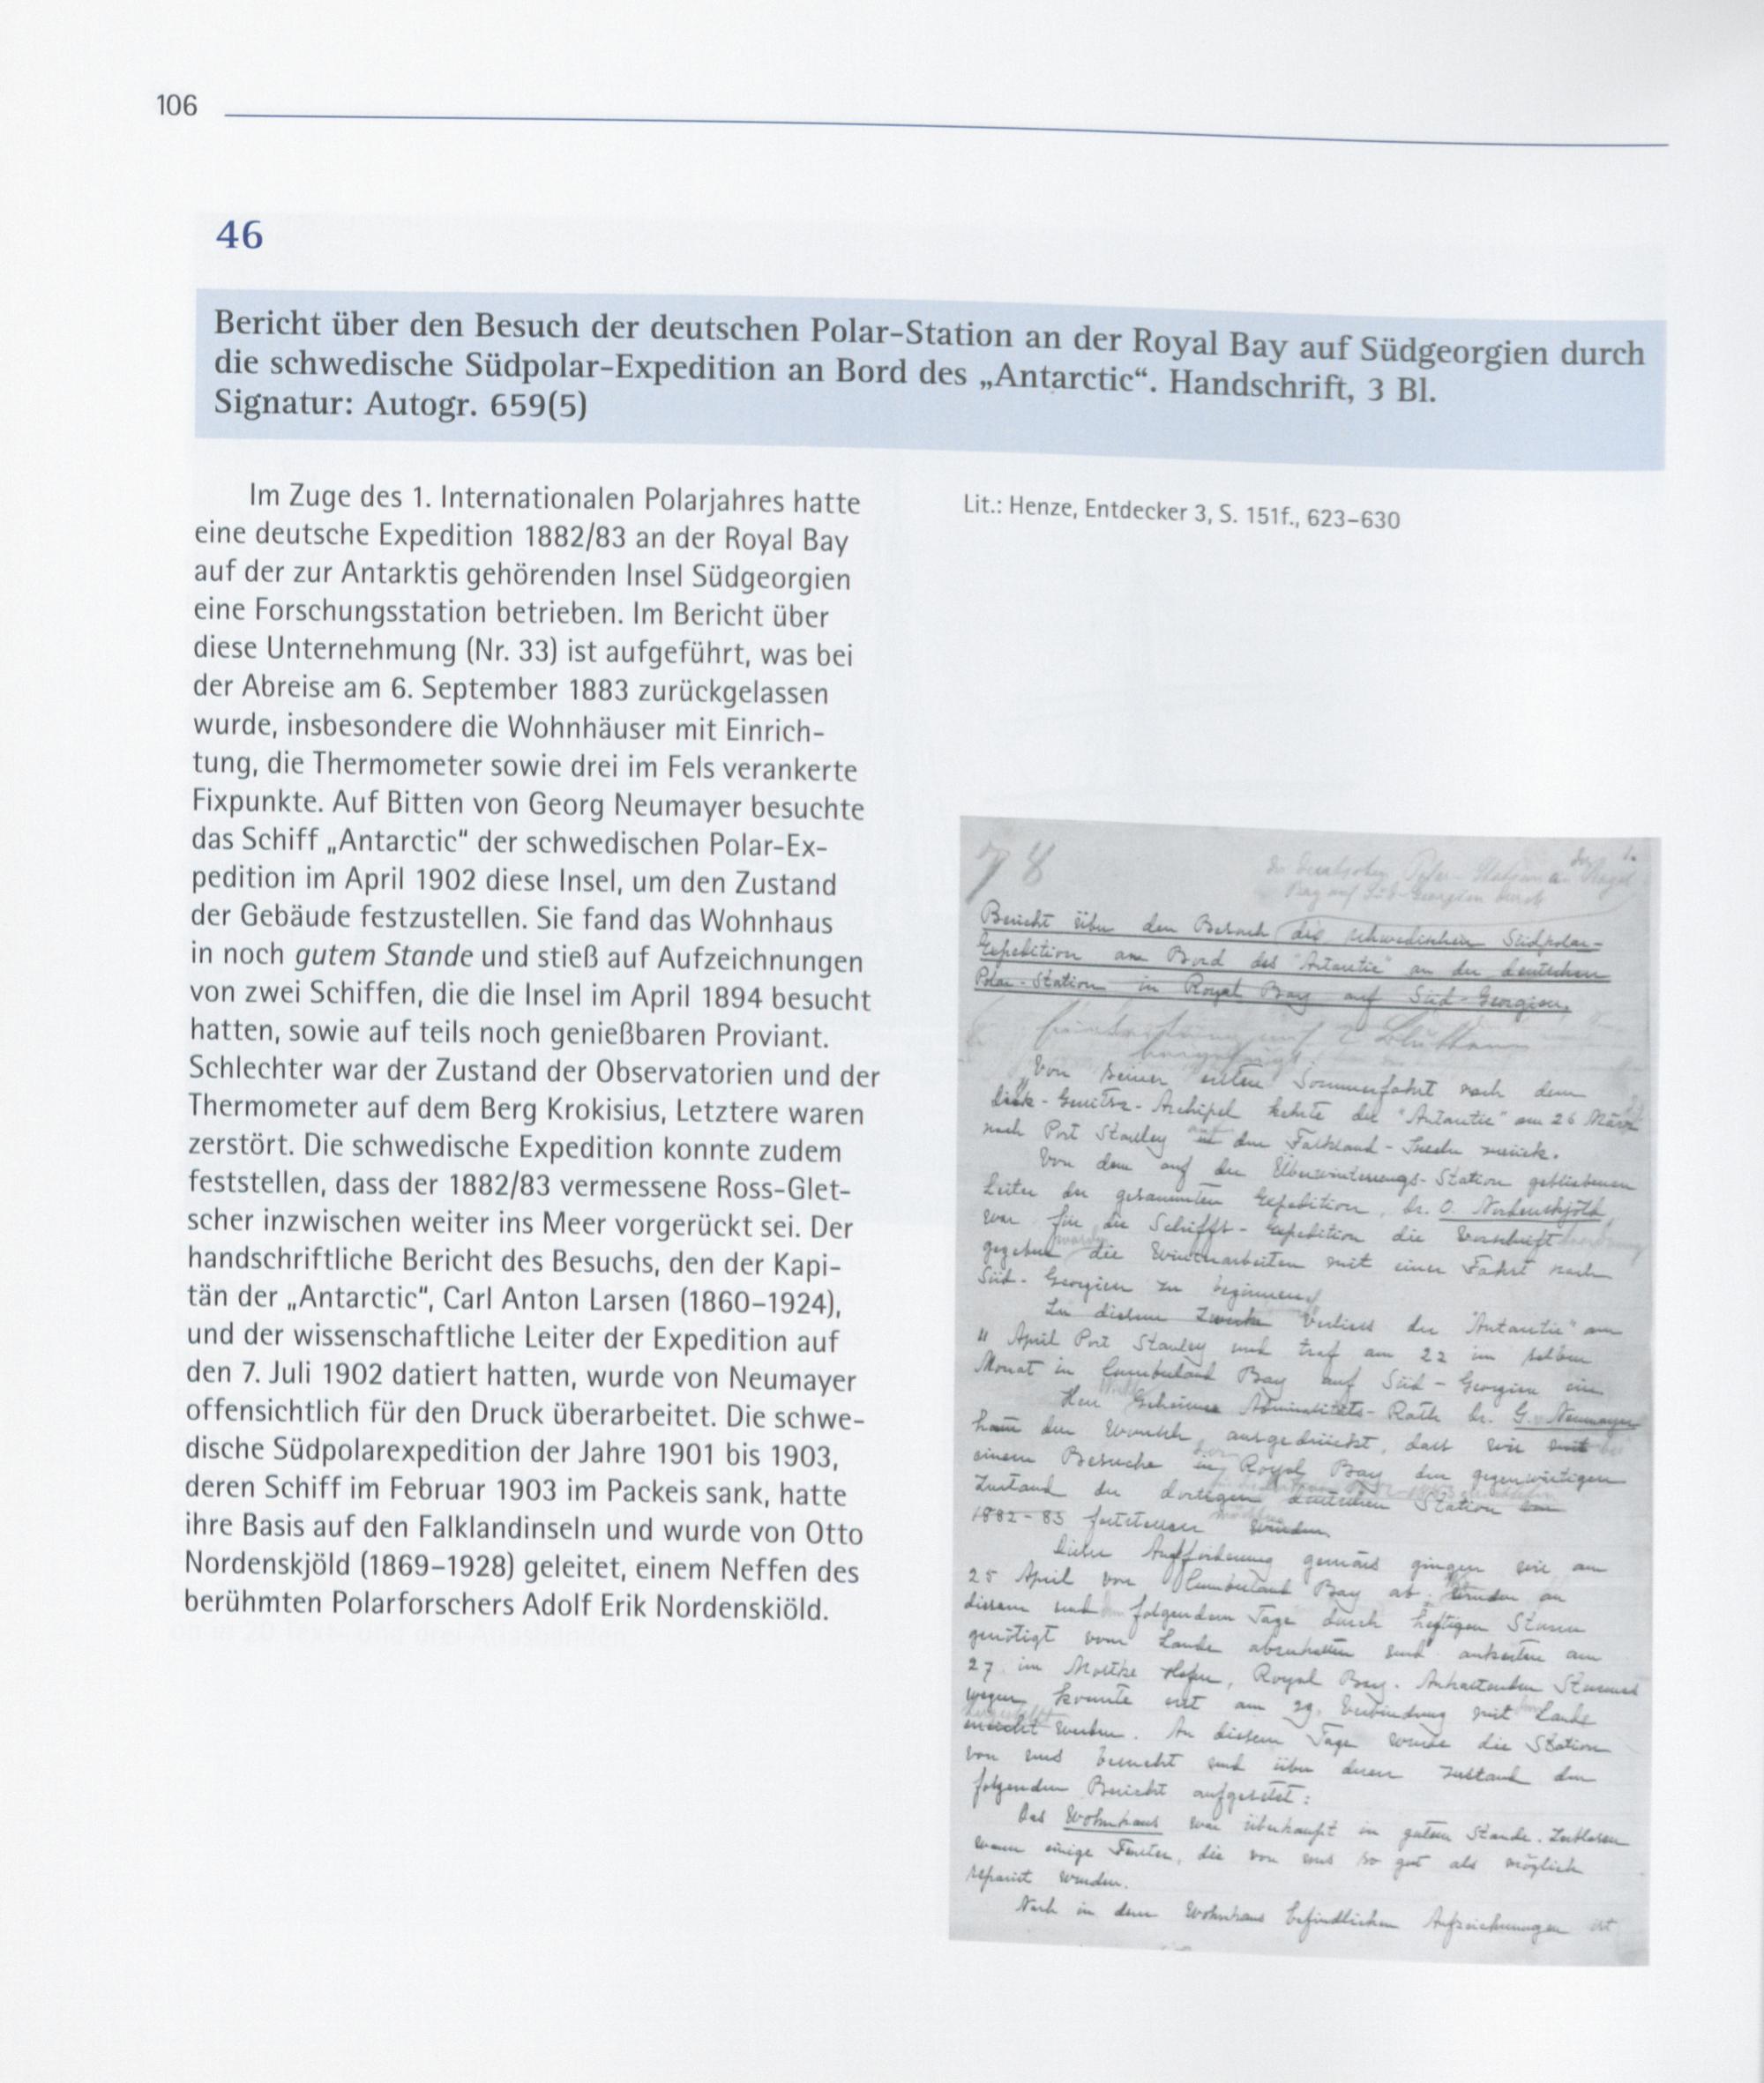 106
46
Bericht über den Besuch der deutschen Polar-Station an der Royal Bay auf Südgeorgien durch
die schwedische Südpolar-Expedition an Bord des „Antarctic“. Handschrift, 3 Bl.
Signatur: Autogr. 659(5)
Im Zuge des 1. Internationalen Polarjahres hatte
eine deutsche Expedition 1882/83 an der Royal Bay
auf der zur Antarktis gehörenden Insel Südgeorgien
eine Forschungsstation betrieben. Im Bericht über
diese Unternehmung (Nr. 33) ist aufgeführt, was bei
der Abreise am 6. September 1883 zurückgelassen
wurde, insbesondere die Wohnhäuser mit Einrich-
tung, die Thermometer sowie drei im Fels verankerte
Fixpunkte. Auf Bitten von Georg Neumayer besuchte
das Schiff „Antarctic“ der schwedischen Polar-Ex-
pedition im April 1902 diese Insel, um den Zustand
der Gebäude festzustellen. Sie fand das Wohnhaus
in noch gutem Stande und stieß auf Aufzeichnungen
von zwei Schiffen, die die Insel im April 1894 besucht
hatten, sowie auf teils noch genießbaren Proviant.
Schlechter war der Zustand der Observatorien und der
Thermometer auf dem Berg Krokisius, Letztere waren
zerstört. Die schwedische Expedition konnte zudem
feststellen, dass der 1882/83 vermessene Ross-Glet-
scher inzwischen weiter ins Meer vorgerückt sei. Der
handschriftliche Bericht des Besuchs, den der Kapi-
tän der „Antarctic“, Carl Anton Larsen (1860–1924),
und der wissenschaftliche Leiter der Expedition auf
den 7. Juli 1902 datiert hatten, wurde von Neumayer
offensichtlich für den Druck überarbeitet. Die schwe-
dische Südpolarexpedition der Jahre 1901 bis 1903,
deren Schiff im Februar 1903 im Packeis sank, hatte
ihre Basis auf den Falklandinseln und wurde von Otto
Nordenskjöld (1869–1928) geleitet, einem Neffen des
berühmten Polarforschers Adolf Erik Nordenskiöld.
Lit.: Henze, Entdecker 3, S. 151f., 623–630
Bericht über den Besuch der schwedischen Südpolar-
Expedition am Bord des "Antarctic" an der deutschen
Polar-Station in Royal Bay auf Süd-Georgien.
Von seiner ersten Sommerfahrt nach dem
Dirk-Gerritsz-Archipel kehrte die "Antarctic" am 26 März
nach Port Stanley den Falkland-Inseln zurück.
Von dem auf der Überwinterungs-Station gebliebenen
Leiter der gesammten Expedition, Dr. O. Nordenskjöld,
war für die Schiffs-Expedition die Vorschrift
gegeben die Winterarbeiten mit einer Fahrt nach
Süd-Georgien zu beginnen.
Zu diesem Zwecke verliess der "Antarctic" am
11 April Port Stanley und traf am 22 im selben
Monat in Cumberland Bay auf Süd-Georgien ein.
Herr Geheimer Admiralitäts-Rath Dr. G. v. Neumayer
hatte den Wunsch ausgedrückt, dass wir mit
einem Besuche in Royal Bay den gegenwärtigen
Zustand der dortigen deutschen Station von
1882-83 feststellen würden.
Dieser Aufforderung gemäss gingen wir am
25 April von Cumberland Bay ab, wurden an
diesem und folgendem Tage durch heftigen Sturm
genötigt vom Lande abzuhalten und ankerten am
27. im Moltke Hafen, Royal Bay. Anhaltenden Sturmes
wegen konnte erst am 29. Verbindung mit Lande
erreicht werden. An diesem Tage wurde die Station
von uns besucht und über deren Zustand den
folgenden Bericht aufgesetzt:
Das Wohnhaus war überhaupt in gutem Stande. Zerblasen
waren einige Fenster, die von uns so gut als möglich
repariert wurden.
Nach in dem Wohnhaus befindlichen Aufzeichnungen ist